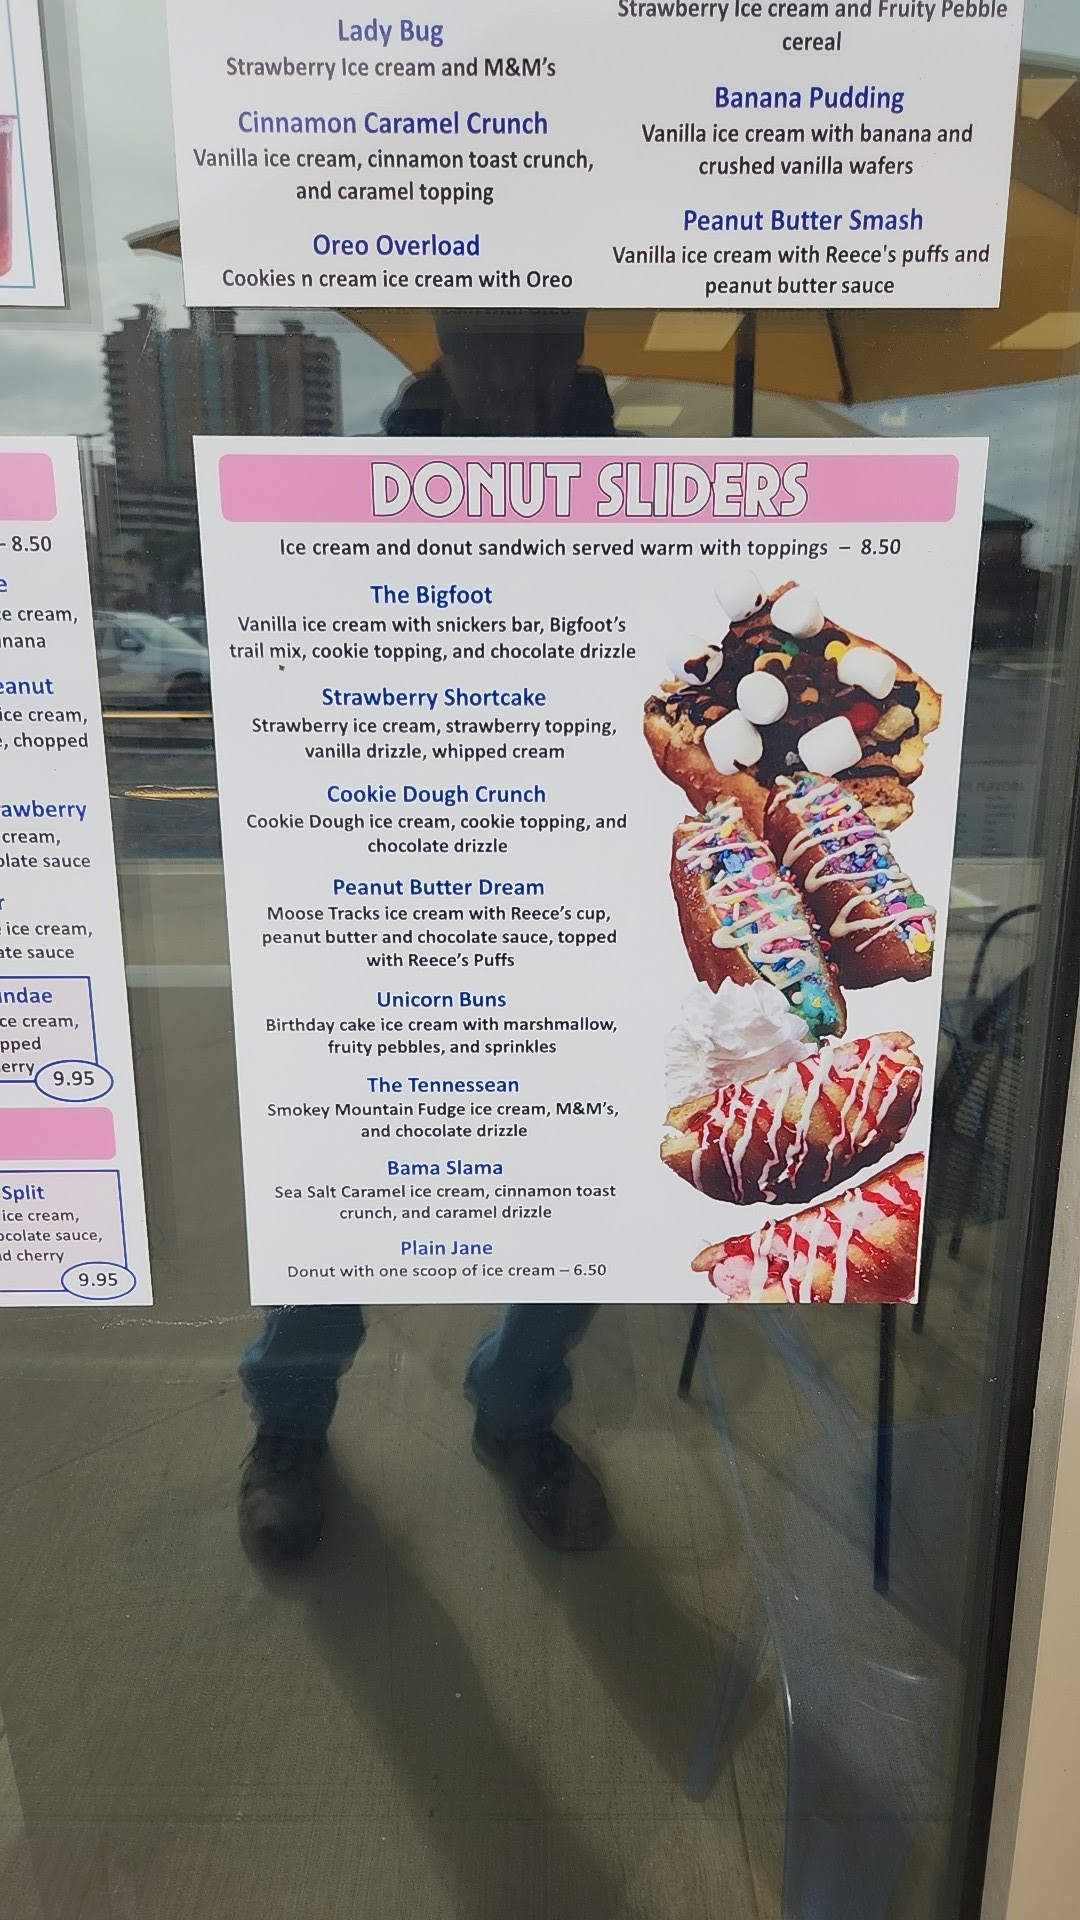 Lady Bug
Strawberry Ice cream and M&M's
Cinnamon Caramel Crunch
Vanilla ice cream, cinnamon toast crunch,
and caramel topping
Oreo Overload
Cookies n cream ice cream with Oreo
Strawberry Ice cream and Fruity Pebble
cereal
Banana Pudding
Vanilla ice cream with banana and
crushed vanilla wafers
Peanut Butter Smash
Vanilla ice cream with Reece's puffs and
peanut butter sauce
– 8.50
ce cream,
eanut
ice cream,
, chopped
cream,
ice cream,
9.95
Split
ice cream,
d cherry
9.95
DONUT SLIDERS
Ice cream and donut sandwich served warm with toppings – 8.50
The Bigfoot
Vanilla ice cream with snickers bar, Bigfoot's
trail mix, cookie topping, and chocolate drizzle
Strawberry Shortcake
Strawberry ice cream, strawberry topping,
vanilla drizzle, whipped cream
Cookie Dough Crunch
Cookie Dough ice cream, cookie topping, and
chocolate drizzle
Peanut Butter Dream
Moose Tracks ice cream with Reece's cup,
peanut butter and chocolate sauce, topped
with Reece's Puffs
Unicorn Buns
Birthday cake ice cream with marshmallow,
fruity pebbles, and sprinkles
The Tennessean
Smokey Mountain Fudge ice cream, M&M's,
and chocolate drizzle
Bama Slama
Sea Salt Caramel ice cream, cinnamon toast
crunch, and caramel drizzle
Plain Jane
Donut with one scoop of ice cream – 6.50